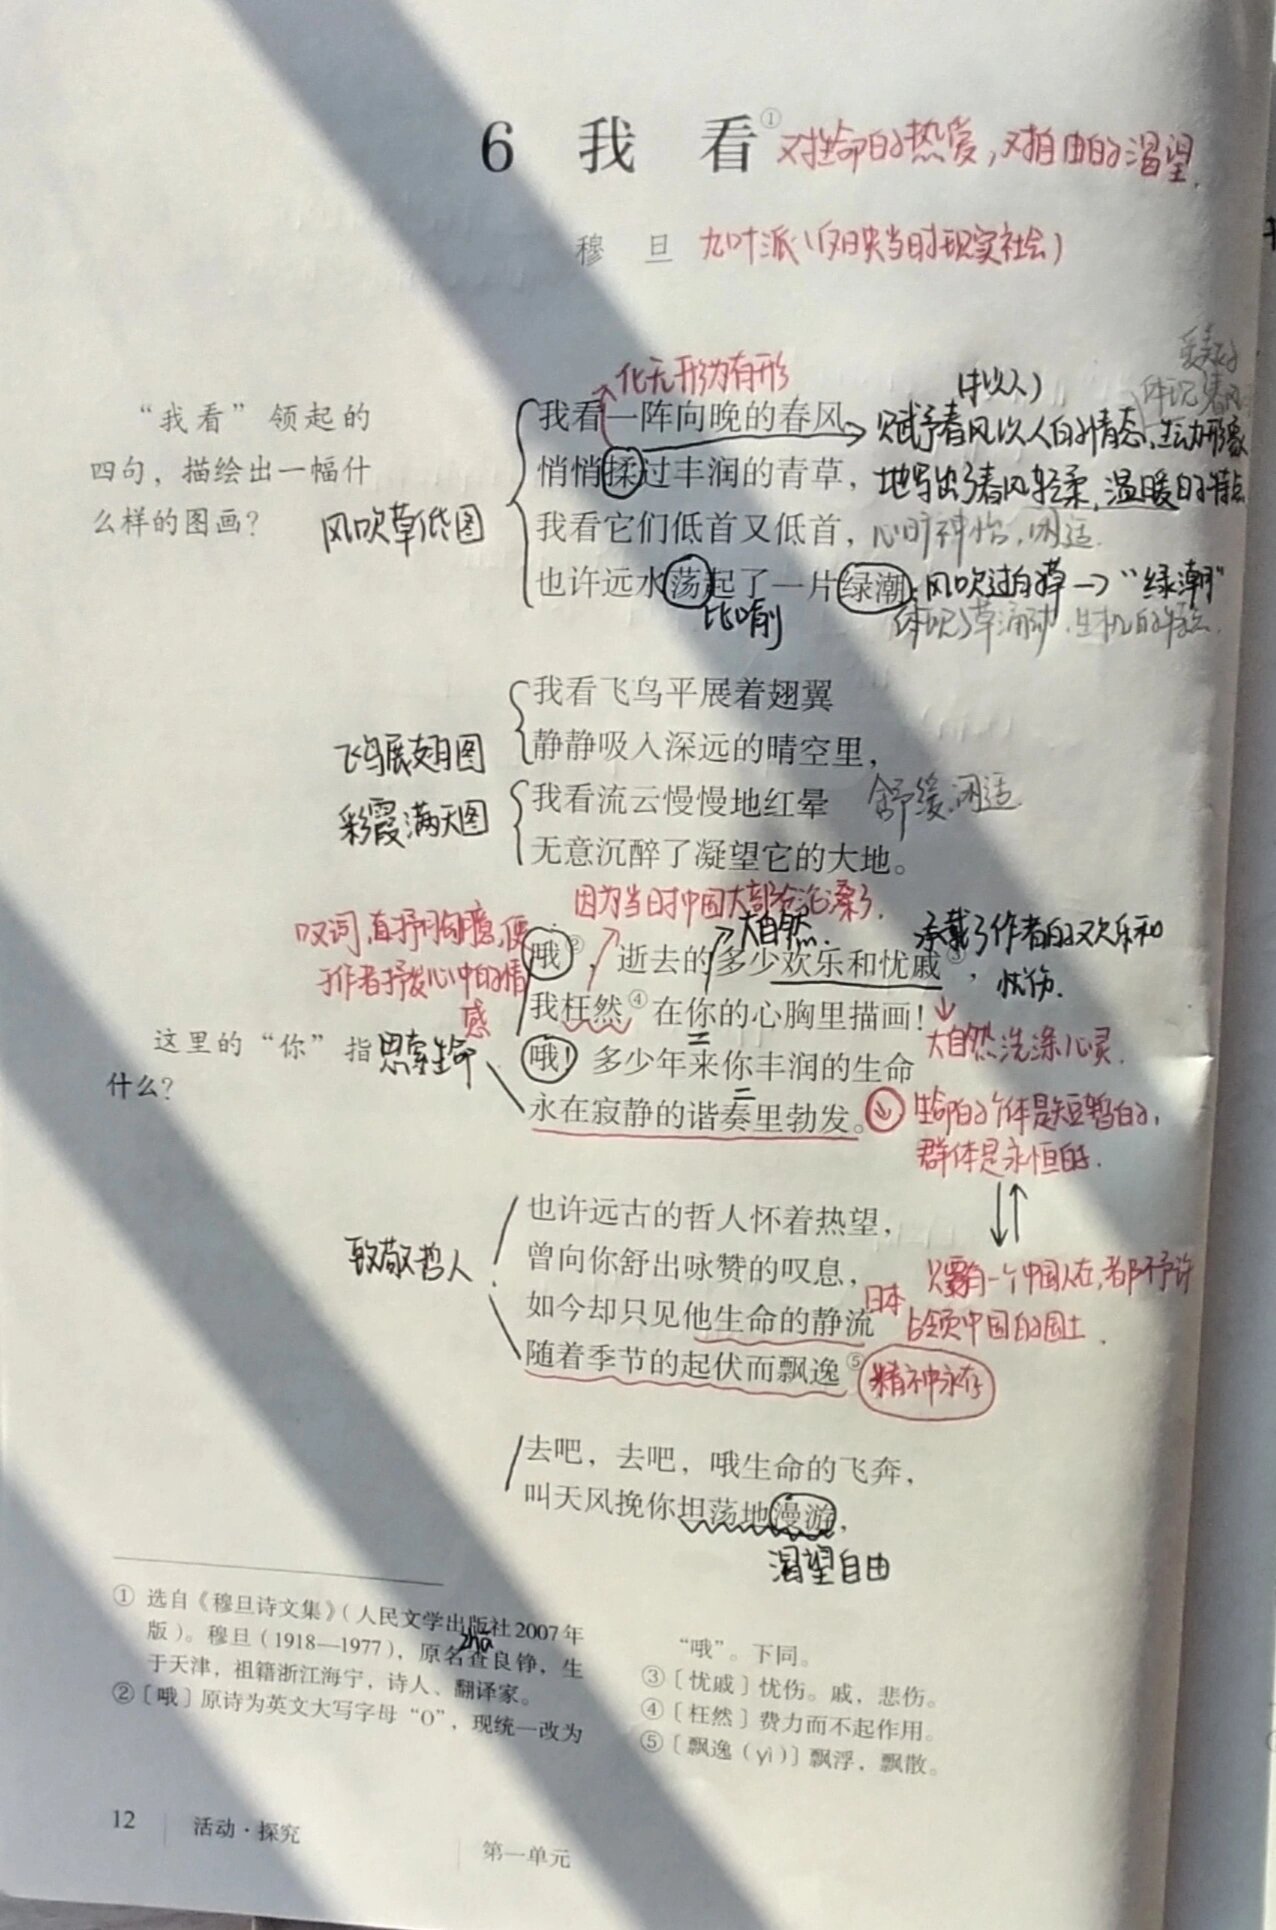 6 我 看①
对生命的热爱，对自由的渴望.
穆 旦
九叶派（反映当时现实社会）
“我看”领起的
四句，描绘出一幅什
么样的图画？
风吹草低图
化无形为有形
我看一阵向晚的春风
悄悄揉过丰润的青草，
我看它们低首又低首，
也许远水荡起了一片绿潮；
比喻
（拟人）
赋予春风以人的情态，生动形象
地写出了春风轻柔，温暖的特点
心旷神怡，闲适.
风吹过白草→“绿潮”
体现了草涌动、生机的特点.
飞鸟展翅图
彩霞满天图
我看飞鸟平展着翅翼
静静吸入深远的晴空里，
我看流云慢慢地红晕
无意沉醉了凝望它的大地。
舒缓闲适
因为当时中国大部分沦丧了.
叹词，直抒胸臆，便
于作者抒发心中的情
感
大自然.
承载了作者的欢乐和
忧伤.
哦②，逝去的多少欢乐和忧戚③，
我枉然④在你的心胸里描画！
哦！多少年来你丰润的生命
永在寂静的谐奏里勃发。
大自然洗涤心灵.
这里的“你”指
什么？
思索生命
生命的个体是短暂的，
群体是永恒的.
致敬哲人
也许远古的哲人怀着热望，
曾向你舒出咏赞的叹息，
如今却只见他生命的静流
随着季节的起伏而飘逸⑤
只要有一个中国人在，都不予许
日本
占领中国的国土.
精神永存
去吧，去吧，哦生命的飞奔，
叫天风挽你坦荡地漫游，
渴望自由
① 选自《穆旦诗文集》（人民文学出版社2007年
版）。穆旦（1918—1977），原名查良铮，生
zhā
于天津，祖籍浙江海宁，诗人、翻译家。
②〔哦〕原诗为英文大写字母“O”，现统一改为
“哦”。下同。
③〔忧戚〕忧伤。戚，悲伤。
④〔枉然〕费力而不起作用。
⑤〔飘逸（yì）〕飘浮，飘散。
12 活动·探究
第一单元